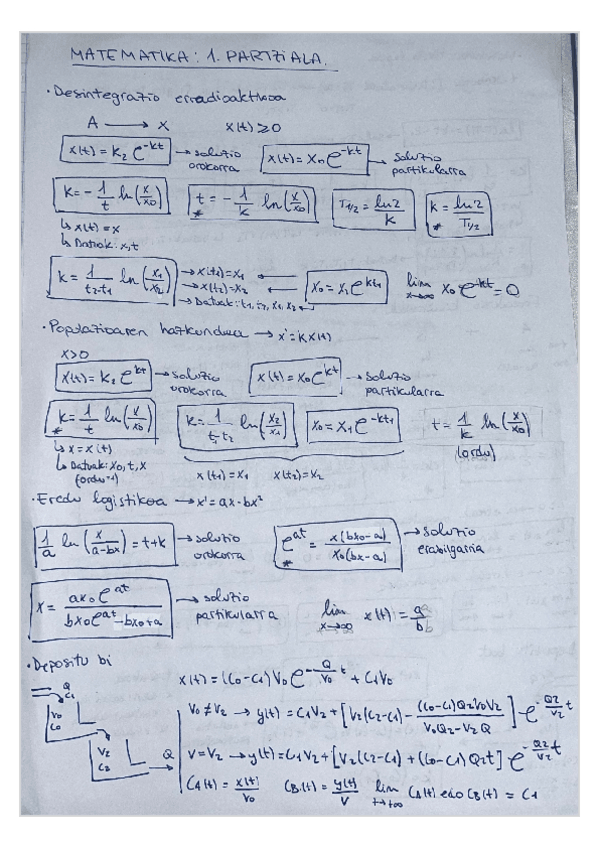 MATEMATIKA: 1. PARTZIALA.
· Desintegrazio erradioaktiboa
A → X    x(t) ≥ 0
x(t) = K₂ e^(-kt) → soluzio orokorra    x(t) = x₀ e^(-kt) → soluzio partikularra
k = - 1/t ln(x/x₀)    * t = - 1/k ln(x/x₀)    T1/2 = ln2/k    * k = ln2/T1/2
↳ x(t) = x
↳ Datuak: x, t
k = 1/(t₂-t₁) ln(x₁/x₂) → x(t₁) = x₁    x₀ = x₁ e^(kt₁)    lim x→∞ x₀ e^(-kt) = 0
→ x(t₂) = x₂
→ Datuak: t₁, t₂, x₁, x₂
· Populazioaren hazkundea → x' = k x(t)
x>0
x(t) = K₂ e^(kt) → soluzio orokorra    x(t) = x₀ e^(kt) → soluzio partikularra
* k = 1/t ln(x/x₀)    k = 1/(t₁-t₂) ln(x₂/x₁)    x₀ = x₁ e^(-kt₁)    t = 1/k ln(x/x₀)
↳ x = x(t)    (ordu)
↳ Datuak: x₀, t, x
(ordu⁻¹)    x(t₁) = x₁    x(t₂) = x₂
· Eredu logistikoa → x' = ax - bx²
1/a ln(x/(a-bx)) = t+k → soluzio orokorra    * e^(at) = x(bx₀-a)/(x₀(bx-a)) → soluzio erabilgarria
x = ax₀e^(at)/(bx₀e^(at) - bx₀+a) → soluzio partikularra    lim x→∞ x(t) = a/b
· Depositu bi
Q
C₁    x(t) = (C₀-C₁) V₀ e^(-Q/V₀ t) + C₁V₀
V₀
C₀    V₀ ≠ V₂ → y(t) = C₁V₂ + [V₂(C₂-C₁) - (C₀-C₁)Q₂V₀V₂/(V₀Q₂-V₂Q)] · e^(-Q₂/V₂ t)
V₂
C₂    Q    V = V₂ → y(t) = C₁V₂ + [V₂(C₂-C₁) + (C₀-C₁)Q₂t] e^(-Q₂/V₂ t)
CA(t) = x(t)/V₀    CB(t) = y(t)/V    lim t→+∞ CA(t) edo CB(t) = C₁